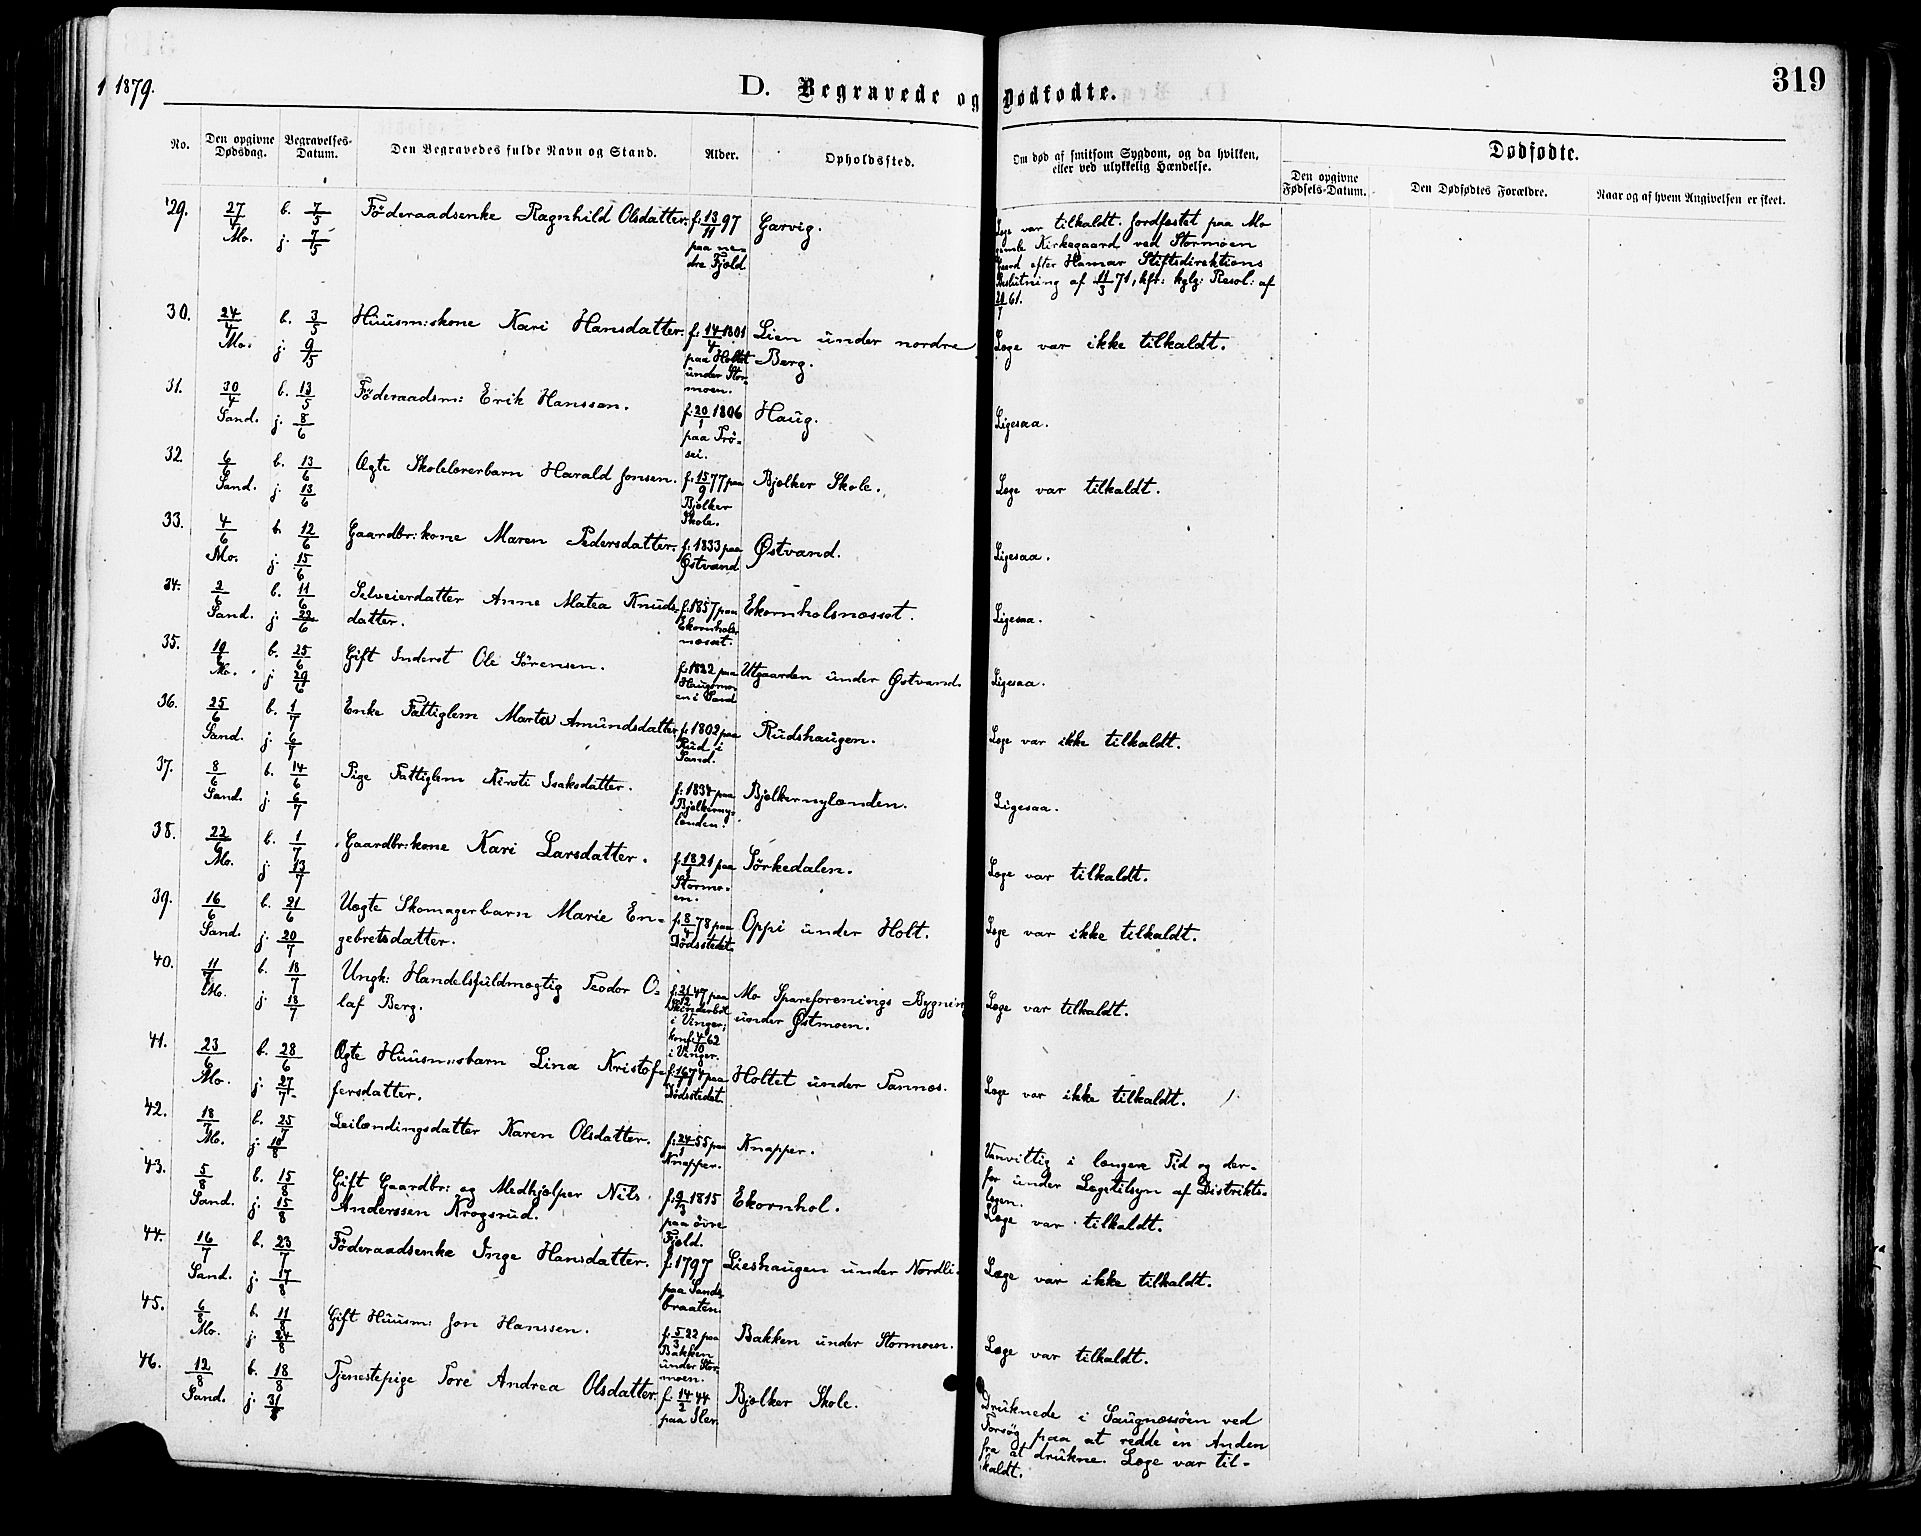 1879.
D. Begravede og Dødfødte.
319
No.
Den opgivne Dødsdag.
Begravelses-Datum.
Den Begravedes fulde Navn og Stand.
Alder.
Opholdssted.
Om død af smitsom Sygdom, og da hvilken, eller ved ulykkelig Hændelse.
Dødfødte.
Den opgivne Fødsels-Datum.
Den Dødfødtes Forældre.
Naar og af hvem Angivelsen er skeet.
29. 27/4 Mo. b. 7/5 j. 7/5 Föderaadsenke Ragnhild Olsdatter. f. 13/11 97 paa nedre Fjeld Garvig.
Læge var tilkaldt. Jordfæstet paa Mo
gamle Kirkegaard ved Stormoen
Gaard efter Hamar Stiftsdirektions
Beslutning af 11/3 71, kfr: kglg: Resol: af
61.
30. 24/4 Mo. b. 3/5 j. 9/5 Huusm:skone Kari Hansdatter. f. 14/4 1801 paa Holtet under Stormoen. Lien under nordre Berg. Læge var ikke tilkaldt.
31. 30/4 Sand. b. 13/5 j. 8/6 Föderaadsm: Erik Hanssen. f. 20/1 1806 paa Frösei. Haug. Ligesaa.
32. 6/6 Sand. b. 13/6 j. 13/6 Ægte Skolelærerbarn Harald Jonsen. f. 15/9 77 paa Bjölker Skole. Bjølker Skole. Læge var tilkaldt.
33. 4/6 Mo. b. 12/6 j. 15/6 Gaardbr:kone Maren Pedersdatter. f. 1833 paa Østvand Østvand. Ligesaa.
34. 2/6 Sand. b. 11/6 j. 22/6 Selveierdatter Anne Matea Knudsdatter. f. 1857 paa Ekornholsnæsset. Ekornholsnæsset. Ligesaa.
35. 19/6 Mo. b. 25/6 j. 29/6 Gift Inderst Ole Sörensen. f. 1822 paa Haugsmoen i Sand Utgaarden under Østvand. Ligesaa.
36. 25/6 Sand. b. 1/7 j. 6/7 Enke Fattiglem Marta Amundsdatter f. 1802 paa Rud i Sand. Rudshaugen. Læge var ikke tilkaldt.
37. 8/6 Sand. b. 14/6 j. 6/7 Pige Fattiglem Kirsti Isaksdatter. f. 1834 paa Bjølkernylænden. Bjølkernylænden. Ligesaa.
38. 22/6 Mo. b. 1/7 j. 13/7 Gaardbr:kone Kari Larsdatter. f. 1821 paa Stormoen. Sörkedalen. Læge var tilkaldt.
39. 16/6 Sand. b. 21/6 j. 20/7 Uægte Skomagerbarn Marie Engebretsdatter. f. 8/4 78 paa Dødsstedet. Oppi under Holt. Læge var ikke tilkaldt.
40. 11/7 Mo. b. 18/7 j. 18/7 Ungk: Handelsfuldmægtig Teodor Olaf Berg. f. 21/12 47 paa i Vinger; konf: 4/10 62 i Vinger. Mo Spareforenings Bygning under Østmoen. Læge var tilkaldt.
41. 23/6 Mo. b. 28/6 j. 27/7 Ægte Huusm:sbarn Lina Kristoffersdatter. f. 74 paa Dødsstedet. Holtet under Tannæs. Læge var ikke tilkaldt.
42. 18/7 Mo. b. 25/7 j. 10/8 Leilændingsdatter Karen Olsdatter. f. 24/1 55 paa Knapper. Knapper.
Vanvittig i længere Tid og der-
for under Lægetilsyn af Distrikts-
lægen.
43. 5/8 Sand. b. 15/8 j. 15/8 Gift Gaardbr: og Medhjælper Nils Anderssen Krogsrud. f. 9/3 1815 paa övre Fjeld. Ekornhol. Læge var tilkaldt.
44. 16/7 Sand. b. 23/7 j. 17/8 Föderaadsenke Inge Hansdatter. f. 1797 paa Sandsbraaten Lieshaugen under Nordli. Læge var ikke tilkaldt.
45. 6/8 Mo. b. 11/8 j. 24/8 Gift Huusm: Jon Hanssen. f. 5/3 22 paa Bakken under Stormoen. Bakken under Stormoen. Læge var tilkaldt.
46. 12/8 Sand. b. 18/8 j. 31/8 Tjenestepige Tore Andrea Olsdatter. f. 14/2 44 paa Sler Bjølker Skole.
Druknede i Saugnæssöen ved
Forsög paa at redde en Anden
fra at drukne. Læge var til-
kaldt.